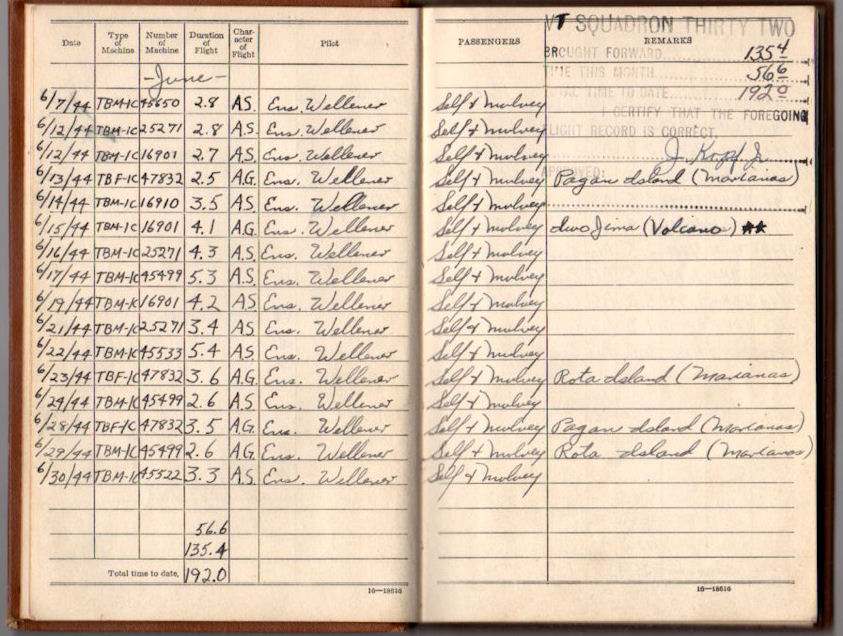 Date Type of Machine Number of Machine Duration of Flight Character of Flight Pilot
-June-
6/7/44 TBM-1C 45650 2.8 A.S. Ens. Wellener
6/12/44 TBM-1C 25271 2.8 A.S. Ens. Wellener
6/12/44 TBM-1C 16901 2.7 A.S. Ens. Wellener
6/13/44 TBF-1C 47832 2.5 A.G. Ens. Wellener
6/14/44 TBM-1C 16910 3.5 A.S. Ens. Wellener
6/15/44 TBM-1C 16901 4.1 A.G. Ens. Wellener
6/16/44 TBM-1C 25271 4.3 A.S. Ens. Wellener
6/17/44 TBM-1C 45499 5.3 A.S. Ens. Wellener
6/19/44 TBM-1C 16901 4.2 A.S. Ens. Wellener
6/21/44 TBM-1C 25271 3.4 A.S. Ens. Wellener
6/22/44 TBM-1C 45533 5.4 A.S. Ens. Wellener
6/23/44 TBF-1C 47832 3.6 A.G. Ens. Wellener
6/24/44 TBM-1C 45499 2.6 A.S. Ens. Wellener
6/28/44 TBF-1C 47832 3.5 A.G. Ens. Wellener
6/29/44 TBM-1C 45499 2.6 A.G. Ens. Wellener
6/30/44 TBM-1C 45522 3.3 A.S. Ens. Wellener
56.6
135.4
Total time to date, 192.0
16—18616
VT SQUADRON THIRTY TWO
PASSENGERS REMARKS
BROUGHT FORWARD 135 4
TIME THIS MONTH 56 6
TIME TO DATE 192 0
Self & Mulvey
I CERTIFY THAT THE FOREGOING
Self & Mulvey FLIGHT RECORD IS CORRECT,
Self & Mulvey J. Kopf Jr.
Self & Mulvey Pagan Island (Marianas)
Self & Mulvey
Self & Mulvey Iwo Jima (Volcano) **
Self & Mulvey
Self & Mulvey
Self & Mulvey
Self & Mulvey
Self & Mulvey
Self & Mulvey Rota Island (Marianas)
Self & Mulvey
Self & Mulvey Pagan Island (Marianas)
Self & Mulvey Rota Island (Marianas)
Self & Mulvey
16—18616